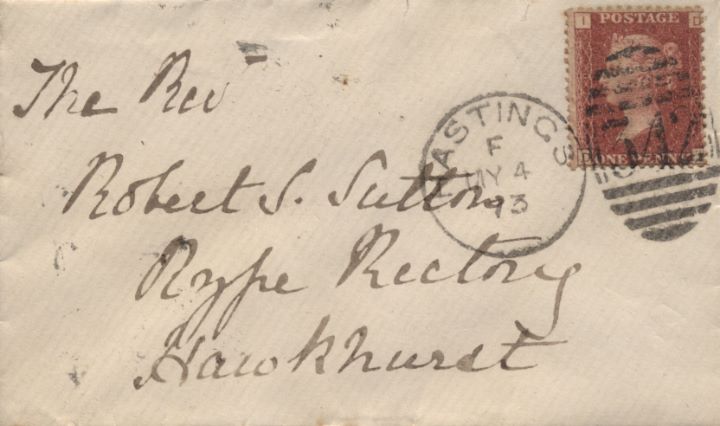 I D
POSTAGE
The Rev
HASTINGS
F
MY 4
73
D ONE PENNY I
Robert S. Sutton
Rype Rectory
Hawkhurst